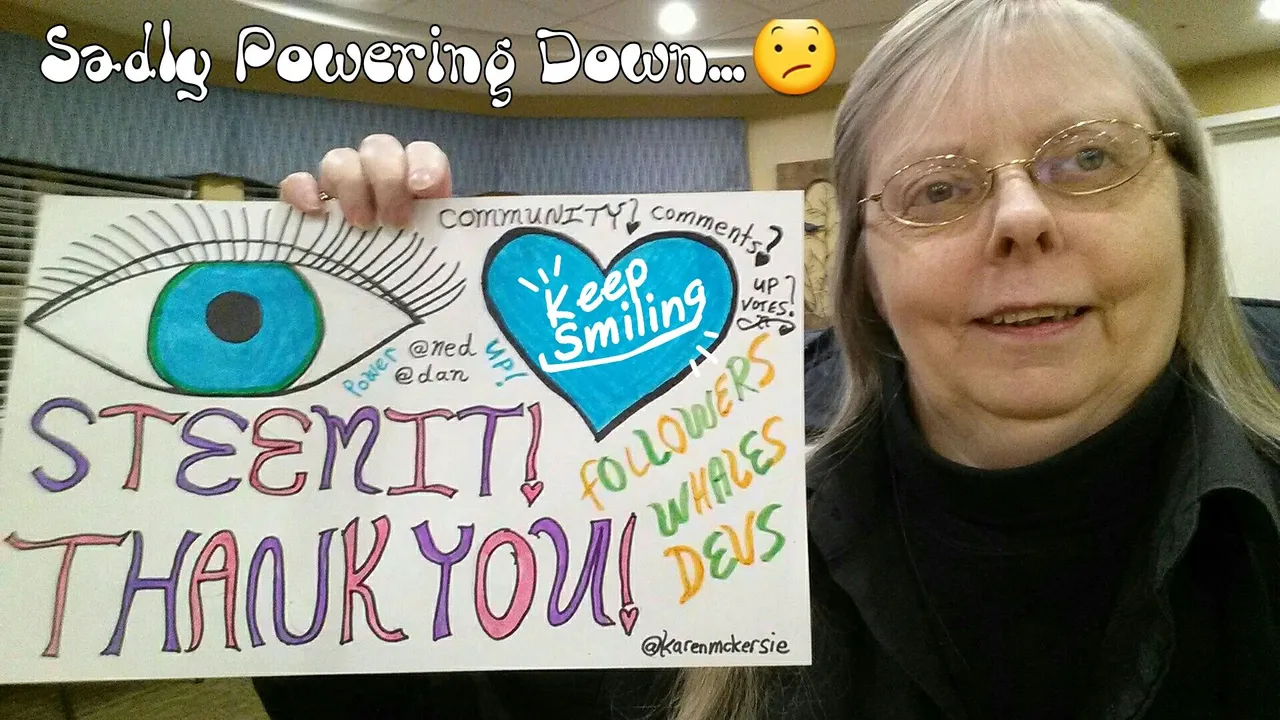 Sadly Powering Down...
COMMUNITY! Comments!
UP!
VOTES!
Keep
Smiling
POWER @ned UP!
@dan
STEEMIT!
FOLLOWERS
WHALES
DEVS
THANK YOU!
@karenmckersie